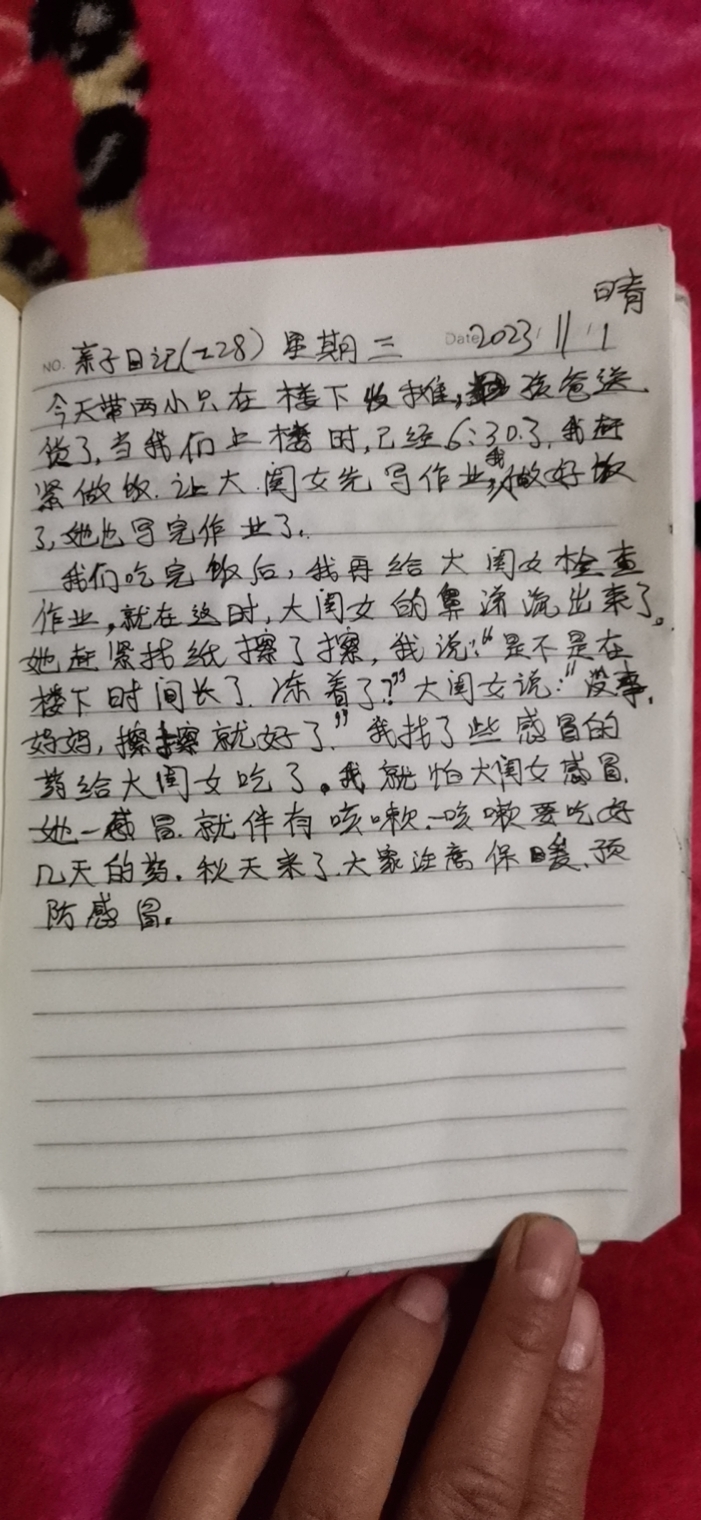 晴
NO. 亲子日记(228) 星期三 Date 2023 / 11 / 1
今天带两小只在楼下收摊, 孩爸送
货了,当我们上楼时,已经6:30了.我赶
紧做饭.让大闺女先写作业,我做好饭
了,她也写完作业了.
我们吃完饭后,我再给大闺女检查
作业,就在这时,大闺女的鼻涕流出来了。
她赶紧找纸擦了擦,我说:“是不是在
楼下时间长了.冻着了?”大闺女说:“没事,
妈妈,擦擦就好了.”我找了些感冒的
药给大闺女吃了。我就怕大闺女感冒.
她一感冒.就伴有咳嗽.一咳嗽要吃好
几天的药.秋天来了.大家注意保暖.预
防感冒.